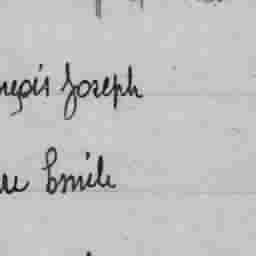 nçois Joseph
Emile